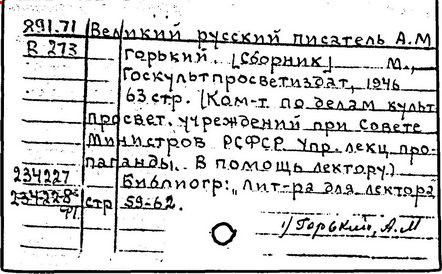 891.71 Великий русский писатель А.М
В 273 Горький. [Сборник] М.,
Госкультпросветиздат, 1946
63 стр. (Ком-т. по делам культ
просвет. учреждений при Совете
Министров РСФСР Упр. лекц. про-
паганды. В помощь лектору.)
234227 Библиогр: „Лит-ра для лектора
234228 стр 59-62.
1) Горький, А.М